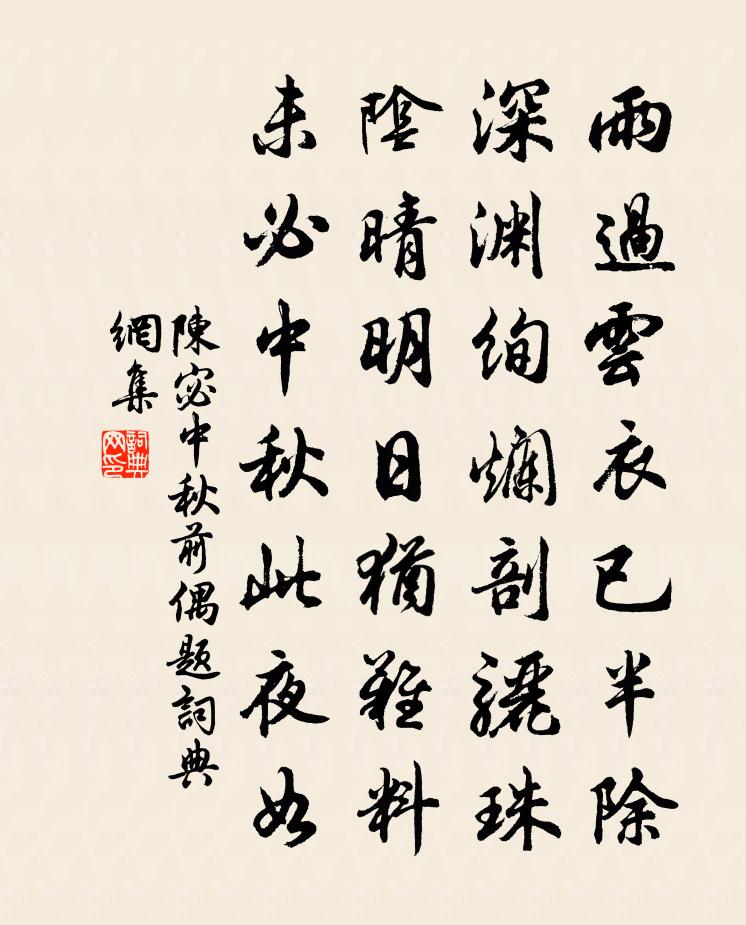 雨過雲衣已半除
深渊絢爛剖驪珠
陰晴明日猶難料
未必中秋此夜如
陳宓中秋前偶題詞典
網集
詞典
网印